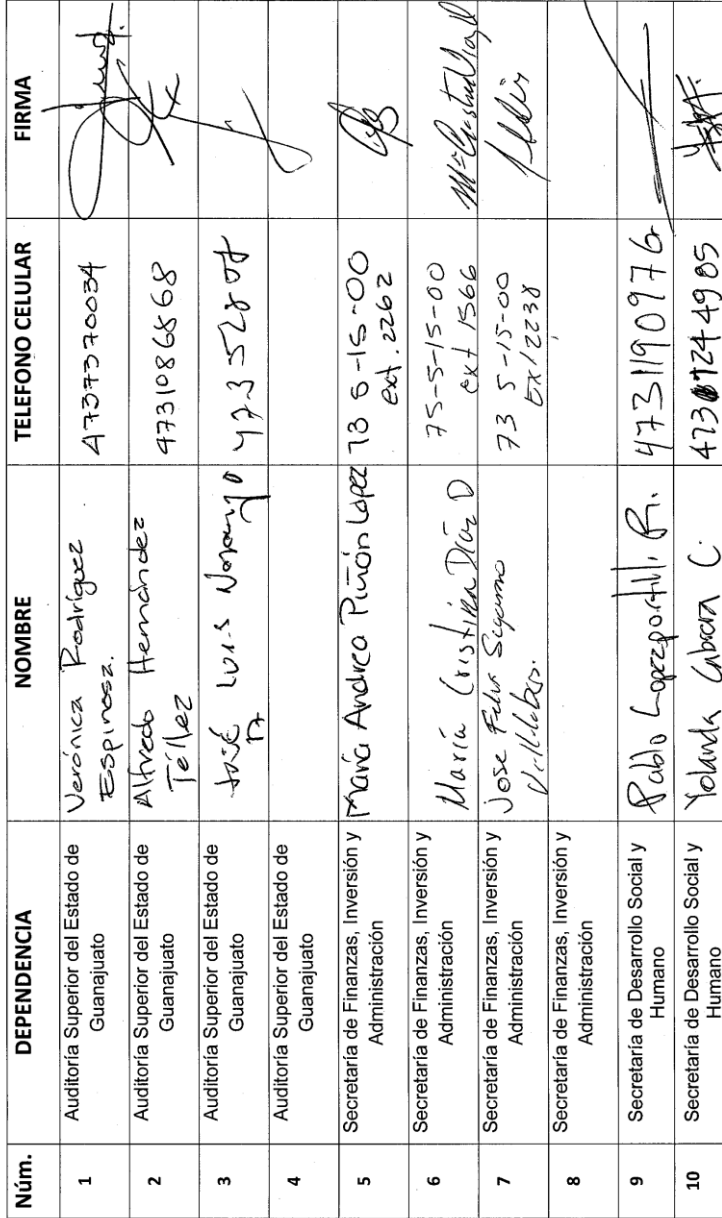 Núm. DEPENDENCIA NOMBRE TELEFONO CELULAR FIRMA
1 Auditoría Superior del Estado de Guanajuato Verónica Rodríguez Espinosa. 4737370034
2 Auditoría Superior del Estado de Guanajuato Alfredo Hernández Téllez 4731086868
3 Auditoría Superior del Estado de Guanajuato José Luis Naranjo
4 Auditoría Superior del Estado de Guanajuato
5 Secretaría de Finanzas, Inversión y Administración María Andrea Piñón Lopez 73 5-15-00 ext. 2262
6 Secretaría de Finanzas, Inversión y Administración María Cristina Díaz D 75-5-15-00 ext 1566
7 Secretaría de Finanzas, Inversión y Administración Jose Felix 73 5-15-00 Ext 2238
8 Secretaría de Finanzas, Inversión y Administración
9 Secretaría de Desarrollo Social y Humano Pablo Lopezportill 4731190976
10 Secretaría de Desarrollo Social y Humano Yolanda Cabrera C.